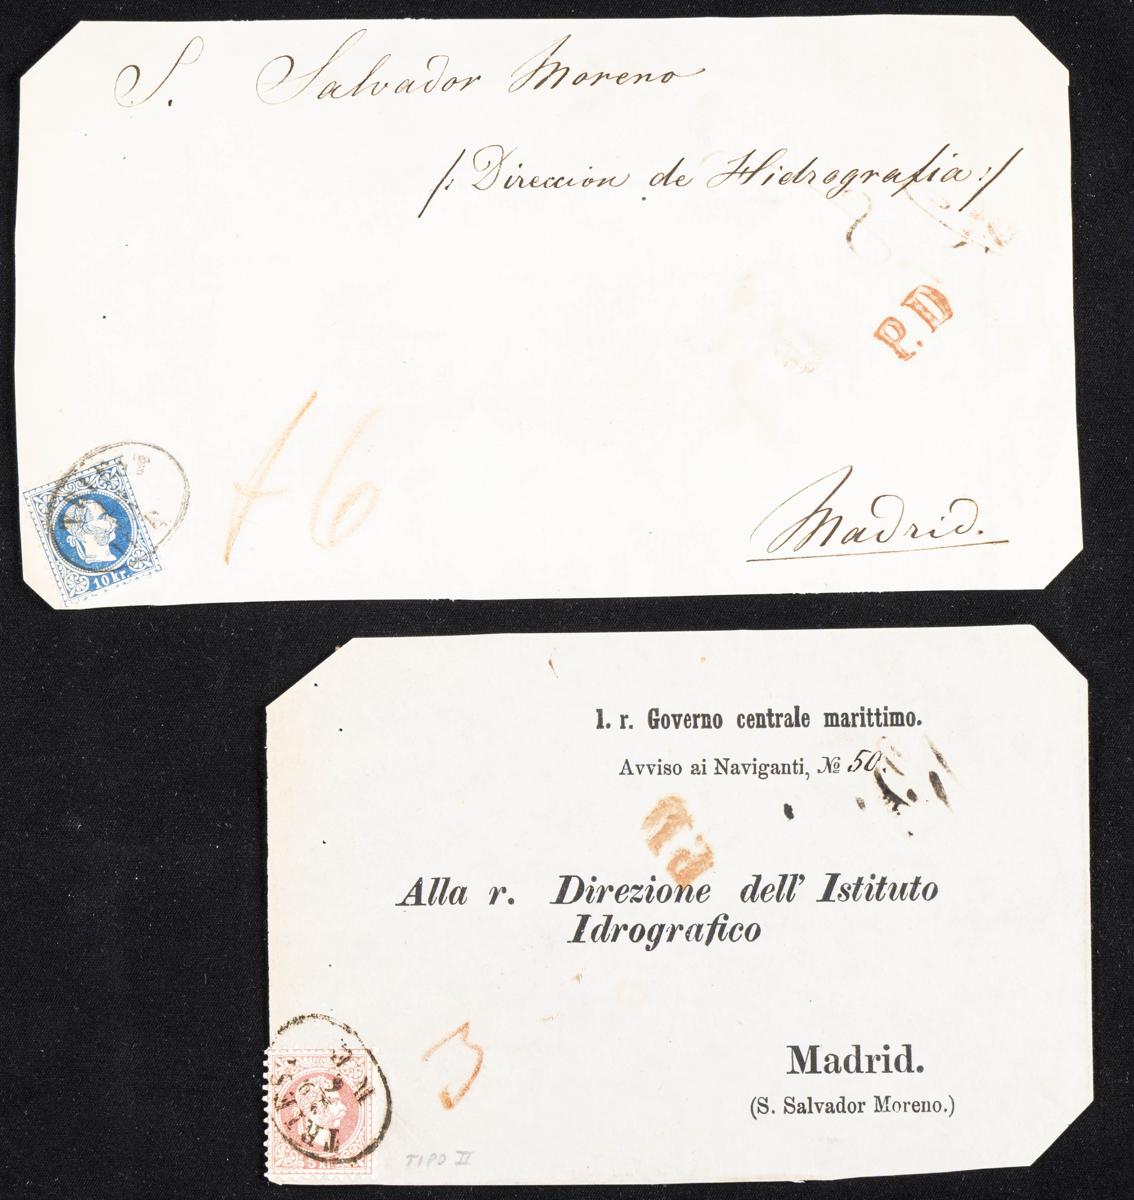 S. Salvador Moreno
/: Direccion de Hidrografia :/
P.D
10 kr.
+6
Madrid.
I. r. Governo centrale marittimo.
Avviso ai Naviganti, № 50.
P.D
Alla r. Direzione dell' Istituto
Idrografico
3
TRIEST
5 kr.
TIPO II
Madrid.
(S. Salvador Moreno.)